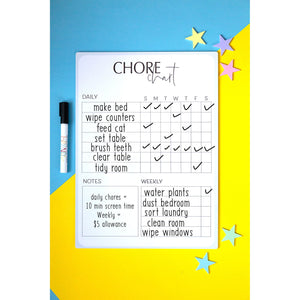 CHORE
chart
DAILY
S M T W T F S
make bed
wipe counters
feed cat
set table
brush teeth
clear table
tidy room
NOTES
daily chores =
10 min screen time
Weekly =
$5 allowance
WEEKLY
water plants
dust bedroom
sort laundry
clean room
wipe windows